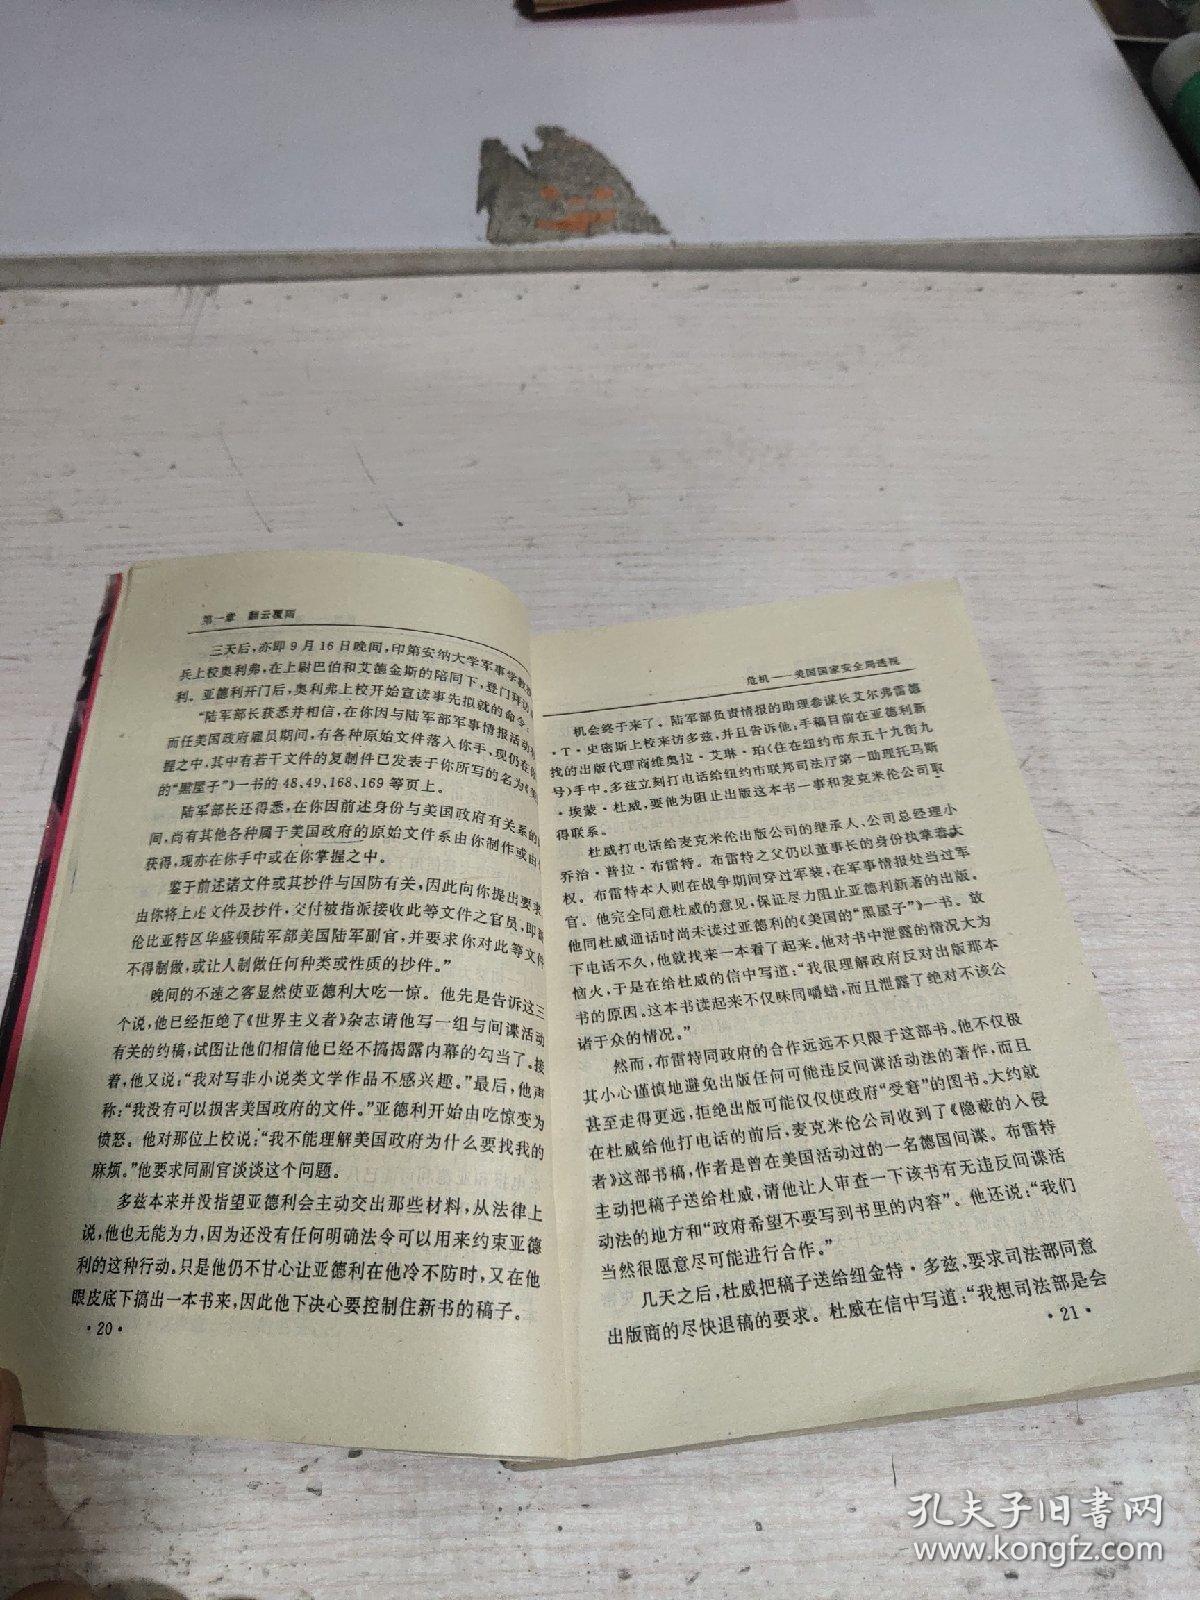 第一章 翻云覆雨
三天后,亦即9月16日晚间,印第安纳大学军事学教
兵上校奥利弗,在上尉巴伯和艾德金斯的陪同下,登门拜访
利。亚德利开门后,奥利弗上校开始宣读事先拟就的命令:
“陆军部长获悉并相信,在你因与陆军部军事情报活动
而任美国政府雇员期间,有各种原始文件落入你手,现仍在
握之中,其中有若干文件的复制件已发表于你所写的名为《美
的“黑屋子”》一书的48、49、168、169等页上。
陆军部长还得悉,在你因前述身份与美国政府有关系的
间,尚有其他各种属于美国政府的原始文件系由你制作或由
获得,现亦在你手中或在你掌握之中。
鉴于前述诸文件或其抄件与国防有关,因此向你提出要求
由你将上述文件及抄件,交付被指派接收此等文件之官员,即
伦比亚特区华盛顿陆军部美国陆军副官,并要求你对此等文件
不得制做,或让人制做任何种类或性质的抄件。”
晚间的不速之客显然使亚德利大吃一惊。他先是告诉这三
个说,他已经拒绝了《世界主义者》杂志请他写一组与间谍活动
有关的约稿,试图让他们相信他已经不搞揭露内幕的勾当了。接
着,他又说:“我对写非小说类文学作品不感兴趣。”最后,他声
称:“我没有可以损害美国政府的文件。”亚德利开始由吃惊变为
愤怒。他对那位上校说:“我不能理解美国政府为什么要找我的
麻烦。”他要求同副官谈谈这个问题。
多兹本来并没指望亚德利会主动交出那些材料,从法律上
说,他也无能为力,因为还没有任何明确法令可以用来约束亚德
利的这种行动。只是他仍不甘心让亚德利在他冷不防时,又在他
眼皮底下搞出一本书来,因此他下决心要控制住新书的稿子。
·20·
危机——美国国家安全局透视
机会终于来了。陆军部负责情报的助理参谋长艾尔弗雷德
·T·史密斯上校来访多兹,并且告诉他:手稿目前在亚德利新
找的出版代理商维奥拉·艾琳·珀(住在纽约市东五十九街九
号)手中。多兹立刻打电话给纽约市联邦司法厅第一助理托马斯
·埃蒙·杜威,要他为阻止出版这本书一事和麦克米伦公司取
得联系。
杜威打电话给麦克米伦出版公司的继承人、公司总经理小
乔治·普拉·布雷特。布雷特之父仍以董事长的身份执掌着大
权。布雷特本人则在战争期间穿过军装,在军事情报处当过军
官。他完全同意杜威的意见,保证尽力阻止亚德利新著的出版。
他同杜威通话时尚未读过亚德利的《美国的“黑屋子”》一书。放
下电话不久,他就找来一本看了起来。他对书中泄露的情况大为
恼火,于是在给杜威的信中写道:“我很理解政府反对出版那本
书的原因。这本书读起来不仅味同嚼蜡,而且泄露了绝对不该公
诸于众的情况。”
然而,布雷特同政府的合作远远不只限于这部书。他不仅极
其小心谨慎地避免出版任何可能违反间谍活动法的著作,而且
甚至走得更远,拒绝出版可能仅仅使政府“受窘”的图书。大约就
在杜威给他打电话的前后,麦克米伦公司收到了《隐蔽的入侵
者》这部书稿,作者是曾在美国活动过的一名德国间谍。布雷特
主动把稿子送给杜威,请他让人审查一下该书有无违反间谍活
动法的地方和“政府希望不要写到书里的内容”。他还说:“我们
当然很愿意尽可能进行合作。”
几天之后,杜威把稿子送给纽金特·多兹,要求司法部同意
出版商的尽快退稿的要求。杜威在信中写道:“我想司法部是会
·21·
孔夫子旧书网
www.kongfz.com